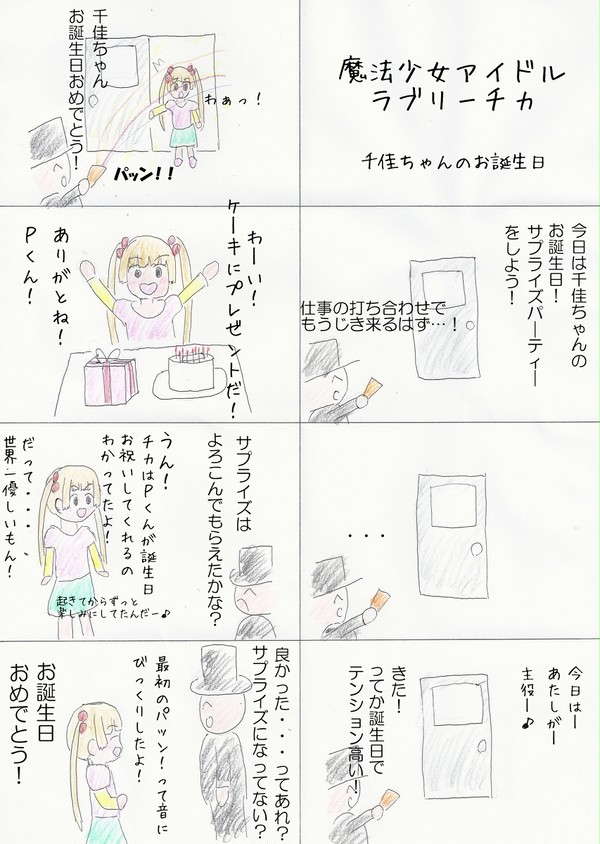 魔法少女アイドル
ラブリーチカ
千佳ちゃんのお誕生日
今日は千佳ちゃんの
お誕生日！
サプライズパーティー
をしよう！
仕事の打ち合わせで
もうじき来るはず…！
・・・
今日はー
あたしがー
主役ー♪
きた！
ってか誕生日で
テンション高い！
千佳ちゃん
お誕生日おめでとう！
わぁっ！
パッン！！
わーい！
ケーキにプレゼントだ！
ありがとね！
Ｐくん！
サプライズは
よろこんでもらえたかな？
うん！
チカはＰくんが誕生日
お祝いしてくれるの
わかってたよ！
だって・・・、
世界一優しいもん！
起きてからずっと
楽しみにしてたんだー♪
良かった・・・ってあれ？
サプライズになってない？
最初のパッン！って音に
びっくりしたよ！
お誕生日
おめでとう！